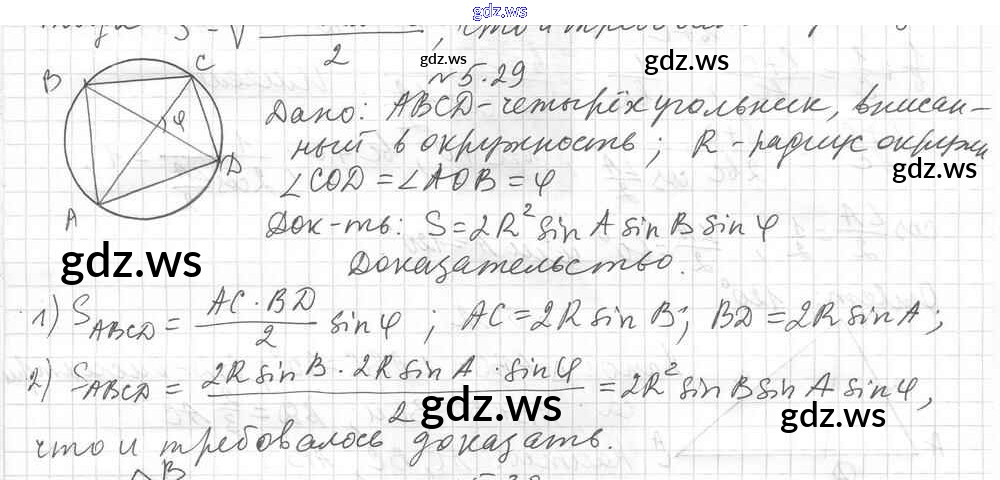 gdz.ws
2
gdz.ws
gdz.ws
№ 5.29
B
C
φ
D
A
Дано: ABCD - четырёхугольник, вписан-
ный в окружность; R - радиус окружн
gdz.ws
∠COD = ∠AOB = φ
Док-ть: S = 2R² sin A sin B sin φ
gdz.ws
Доказательство.
1) S_ABCD = AC · BD / 2 sin φ ; AC = 2R sin B; BD = 2R sin A;
2) S_ABCD = 2R sin B · 2R sin A · sin φ / 2 = 2R² sin B sin A sin φ,
gdz.ws
gdz.ws
что и требовалось доказать.
B